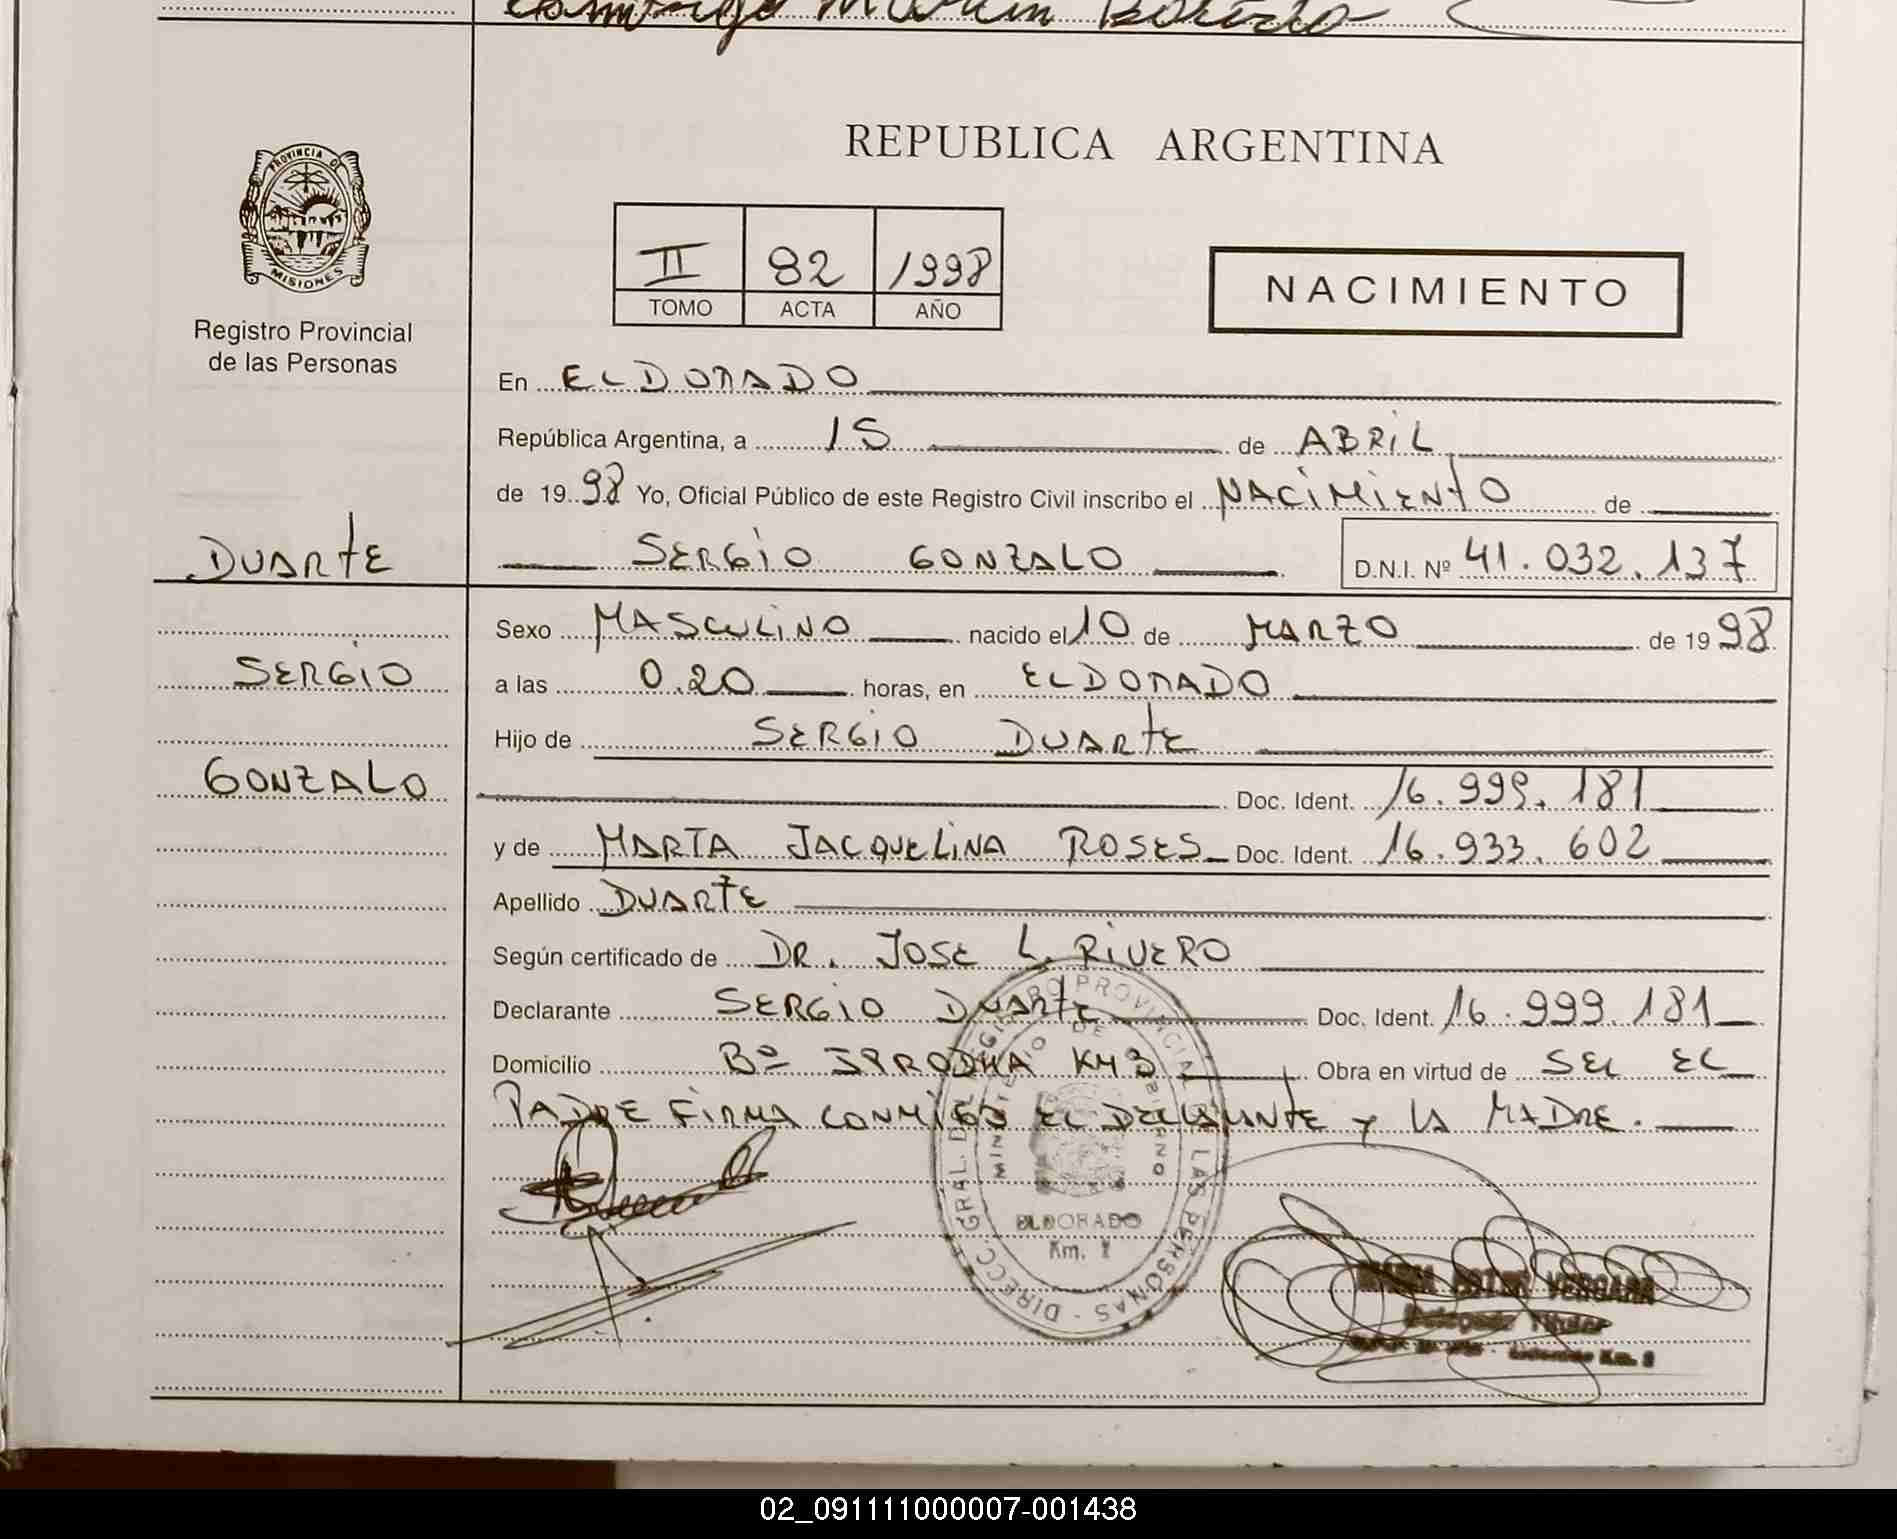 Martin
PROVINCIA DE
MISIONES
Registro Provincial
de las Personas
REPUBLICA ARGENTINA
II 92 1998
TOMO ACTA AÑO
NACIMIENTO
En ELDORADO
República Argentina, a 15 de ABRIL
de 1998 Yo, Oficial Público de este Registro Civil inscribo el NACIMIENTO de
DUARTE SERGIO GONZALO D.N.I. Nº 41.032.137
Sexo MASCULINO nacido el 10 de MARZO de 1998
SERGIO a las 0.20 horas, en ELDORADO
Hijo de SERGIO DUARTE
GONZALO Doc. Ident. 16.999.181
y de MARTA JACQUELINA ROSES Doc. Ident. 16.933.602
Apellido DUARTE
Según certificado de DR. JOSE L. RIVERO
Declarante SERGIO DUARTE Doc. Ident. 16.999.181
Domicilio Bº KM 3 Obra en virtud de SEL EL
PADRE FIRMA CONMIGO EL DECLARANTE Y LA MADRE.
DIRECC. GRAL. DEL REGISTRO PROVINCIAL DE LAS PERSONAS
MINISTERIO DE GOBIERNO
ELDORADO
Km.
VERGARA
Delegada Titular
Km.
02_091111000007-001438